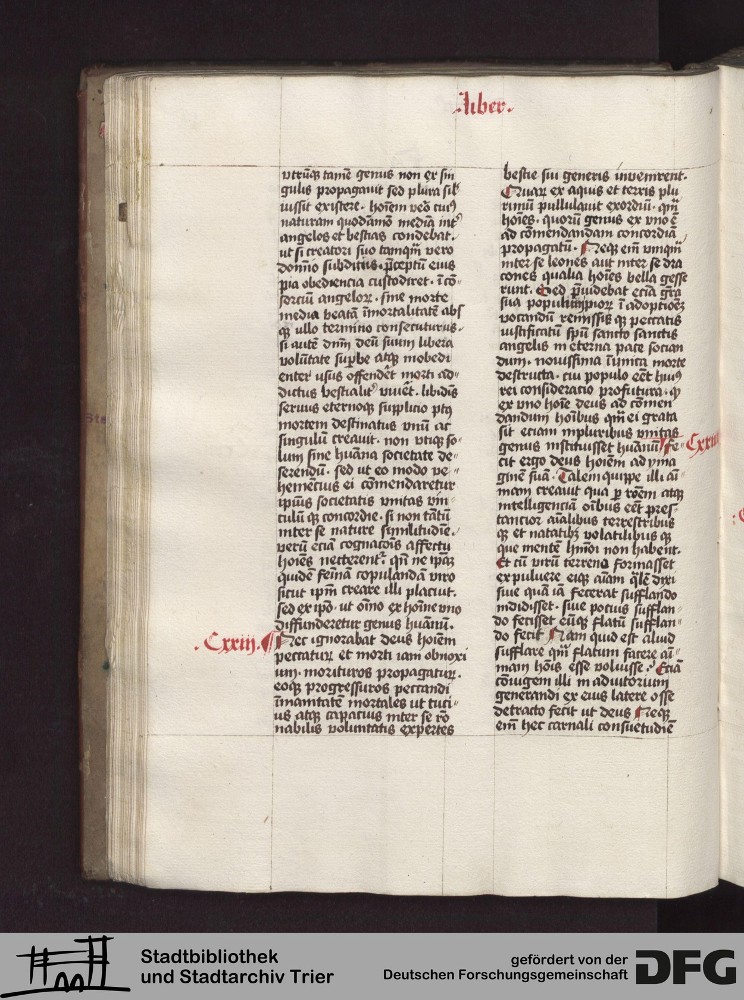 Liber.
vtrūq̨ tamē genus non ex sin
gulis propagauit sed plura sil̛
iussit existere. hoīem ꝟo cuiꝰ
naturam quodāmo mediā intͥ
angelos et bestias condebat.
ut si creatori suo tamqm̄ vero
domīo subditus. p̄ceptū eius
pia obediencia custodiret. ī cō⸗
sorciū angeloꝝ. sine morte
media beatā īmortalitatē abs
qȝ ullo termino consecuturus.
si autē dnm̄ deū suum libera
volūtate sup̄be atqȝ inobedi
enter usus offenderet morti ad⸗
dictus bestialiͭ viueret. libidīs
seruus eternoqȝ supplicio pꝰ
mortem destinatus vnū ac
singulū creauit. non vtiqȝ so⸗
lum sine huāna societate de⸗
serendū. sed ut eo modo ve⸗
hemēcius ei cōmendaretur
ipīus societatis vnitas vin⸗
culū qȝ concordie. si non tātū
inter se nature similitudīe.
verū eciā cognacōis affectu
hoīes necterent̄. qn̄ ne ipāȝ
quidē feīnā copulandā viro
sicut ipm̄ creare illi placuit.
sed ex ipo. ut oīno ex hoīne vno
diffunderetur genus huānū.
.Cxxiij. Nec ignorabat deus hoīem
peccaturū et morti iam obnoxi
um. morituros propagaturū.
eoqȝ progressuros peccandi
īmanitatē mortales ut tuci⸗
us atqȝ capacius inter se rō
nabilis voluntatis expertes
bestie sui generis inuenirent.
Quaꝝ ex aquis et terris plu
rimū pullulauit exordiū. qm̄
hoīes. quorū genus ex vno ē
ad cōmendandam concordiā
propagatū. Neqȝ em̄ vmqm̄
inter se leones aut inter se dra
cones qualia hoīes bella gesse
runt. Sed p̄uidebat eciā grā
sua populū pioꝝ ī adoptioēȝ
vocandū remissis qȝ peccatis
iustificatū spū sancto sanctis
angelis in eterna pace socian
dum. nouissima īimica morte
destructa. cui populo eēt huiꝰ
rei consideracio profutura. qͩ
ex vno hoīe deus ad cōmen
dandum hoībus qm̄ ei grata
sit eciam inpluribus vnitas
genus instituisset huānū Fe⸗ Cxxiiij
cit ergo deus hoīem ad yma
ginē suā. Talem quippe illi aī⸗
mam creauit qua ꝑ rōem atqȝ
intelligenciā oībus eēt pres⸗
tancior aīalibus terrestribus
qȝ et natatibꝫ volatilibus qȝ
que mentē hmōi non habent.
Et cū virū terreno formasset
ex puluere eiqȝ aīam qlē dixi
siue quā iā fecerat sufflando
indidisset. siue pocius sufflan⸗
do fecisset eūqȝ flatū sufflan⸗
do fecit Nam quid est aliud
sufflare qm̄ flatum facere aī⸗
mam hoīs esse voluisset. Eciā
cōiugem illi in adiutorium
generandi ex eius latere osse
detracto fecit ut deus Neqȝ
em̄ hec carnali consuetudīe
Stadtbibliothek
und Stadtarchiv Trier
gefördert von der
Deutschen Forschungsgemeinschaft
DFG